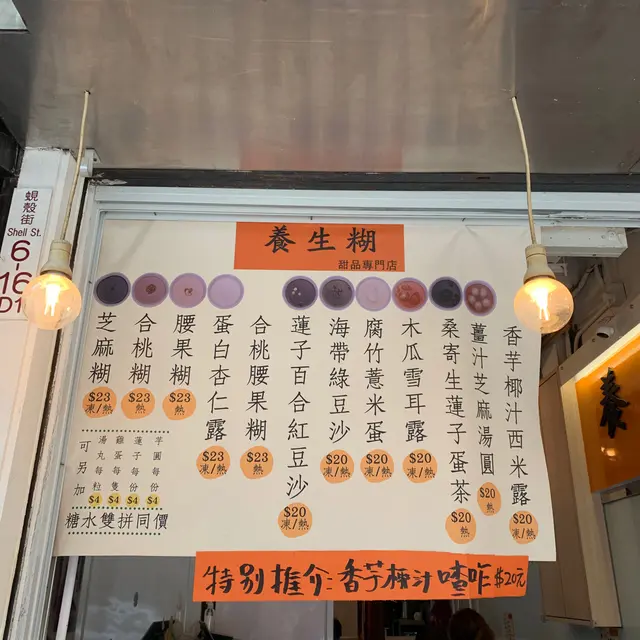 蜆殼街
Shell St.
6
養生糊
甜品專門店
芝麻糊
$23
凍/熱
合桃糊
$23
熱
腰果糊
$23
熱
蛋白杏仁露
$23
凍/熱
合桃腰果糊
$23
熱
蓮子百合紅豆沙
$20
凍/熱
海帶綠豆沙
$20
凍/熱
腐竹薏米蛋
$20
凍/熱
木瓜雪耳露
$20
凍/熱
桑寄生蓮子蛋茶
$20
凍/熱
薑汁芝麻湯圓
$20
熱
香芋椰汁西米露
$20
凍/熱
可另加
湯丸每粒
$4
雞蛋每隻
$4
蓮子每份
$4
芋圓每份
$4
糖水雙拼同價
特別推介:香芋椰汁喳咋$20元
養